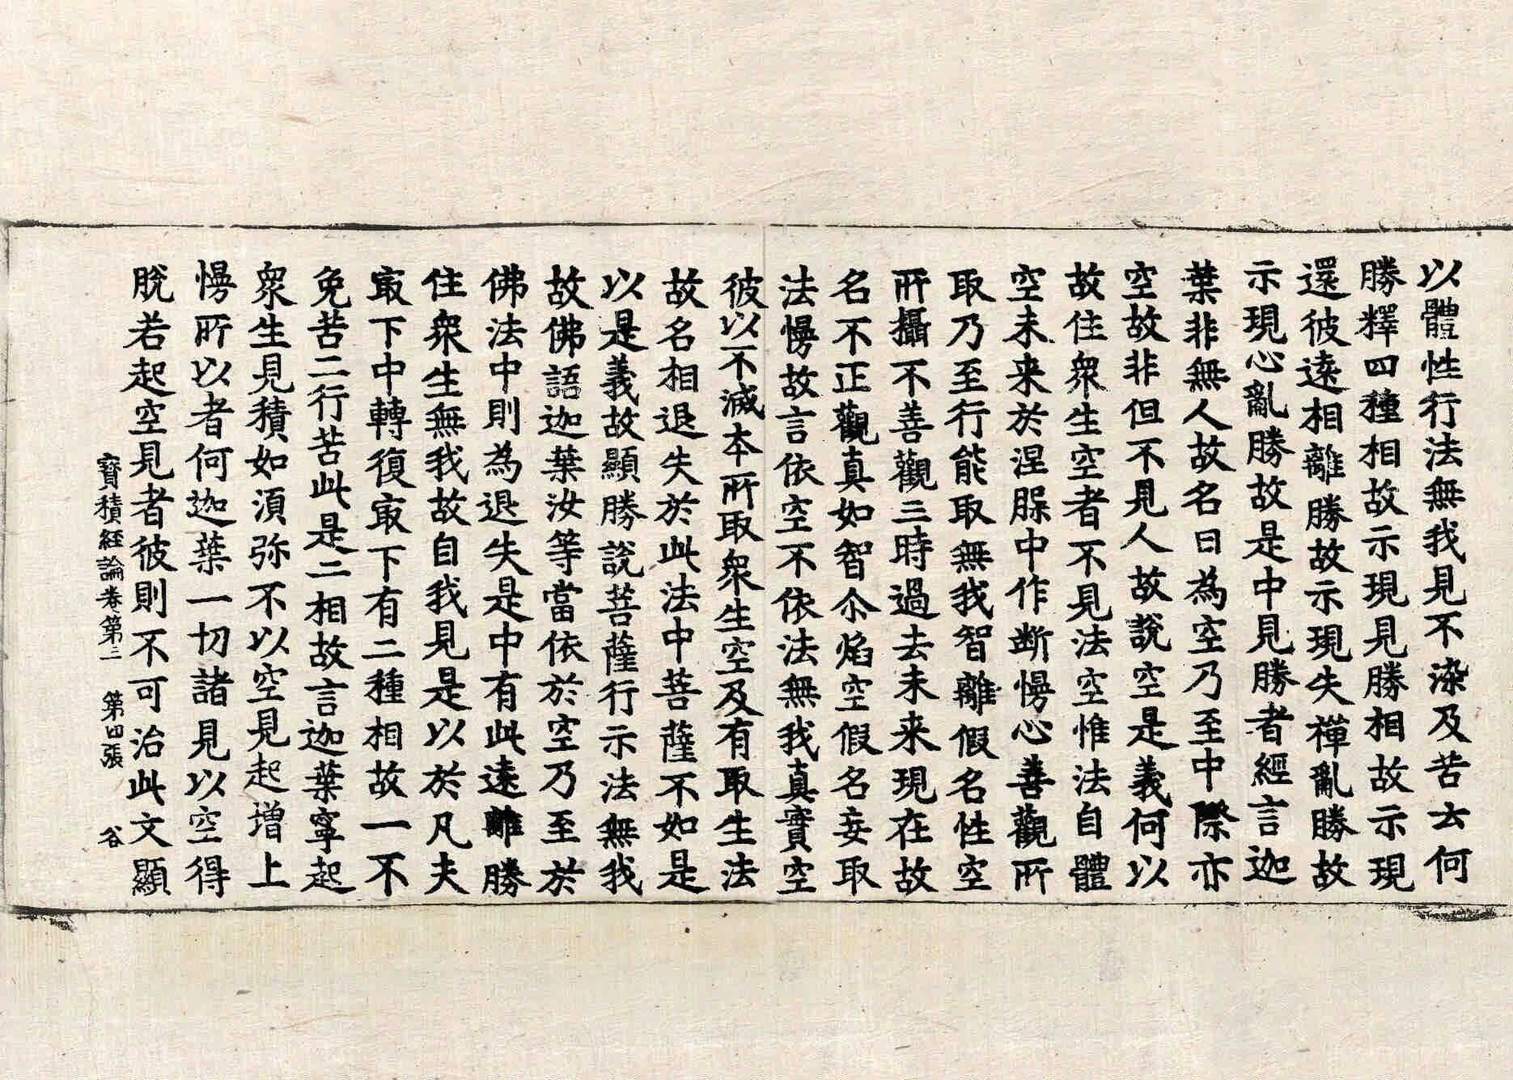 以體性行法無我見不染及苦云何
勝釋四種相故示現見勝相故示現
還彼遠相離勝故示現失禪亂勝故
示現心亂勝故是中見勝者經言迦
葉非無人故名曰為空乃至中際亦
空故非但不見人故說空是義何以
故住衆生空者不見法空惟法自體
空未来於涅槃中作断慢心善觀所
取乃至行能取無我智離假名性空
所攝不善觀三時過去未来現在故
名不正觀真如智尒焰空假名妄取
法慢故言依空不依法無我真實空
彼以不滅本所取衆生空及有取生法
故名相退失於此法中菩薩不如是
以是義故顯勝說菩薩行示法無我
故佛語迦葉汝等當依於空乃至於
佛法中則為退失是中有此遠離勝
住衆生無我故自我見是以於凡夫
冣下中轉復冣下有二種相故一不
免苦二行苦此是二相故言迦葉寧起
衆生見積如湏弥不以空見起增上
慢所以者何迦葉一切諸見以空得
脫若起空見者彼則不可治此文顯
寶積經論卷第二 第四張 谷